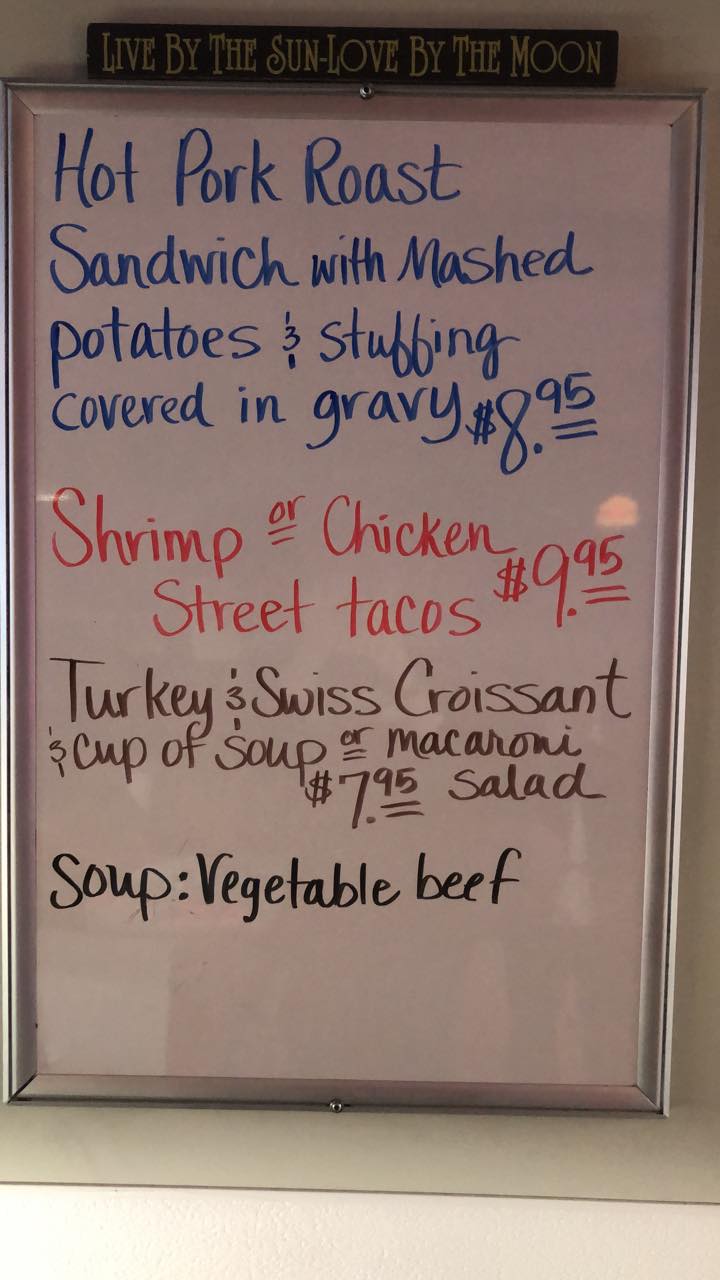 LIVE BY THE SUN-LOVE BY THE MOON
Hot Pork Roast
Sandwich with Mashed
potatoes & stuffing
covered in gravy $8.95
Shrimp or Chicken
Street tacos $9.95
Turkey & Swiss Croissant
& Cup of soup or macaroni
$7.95 salad
Soup: Vegetable beef